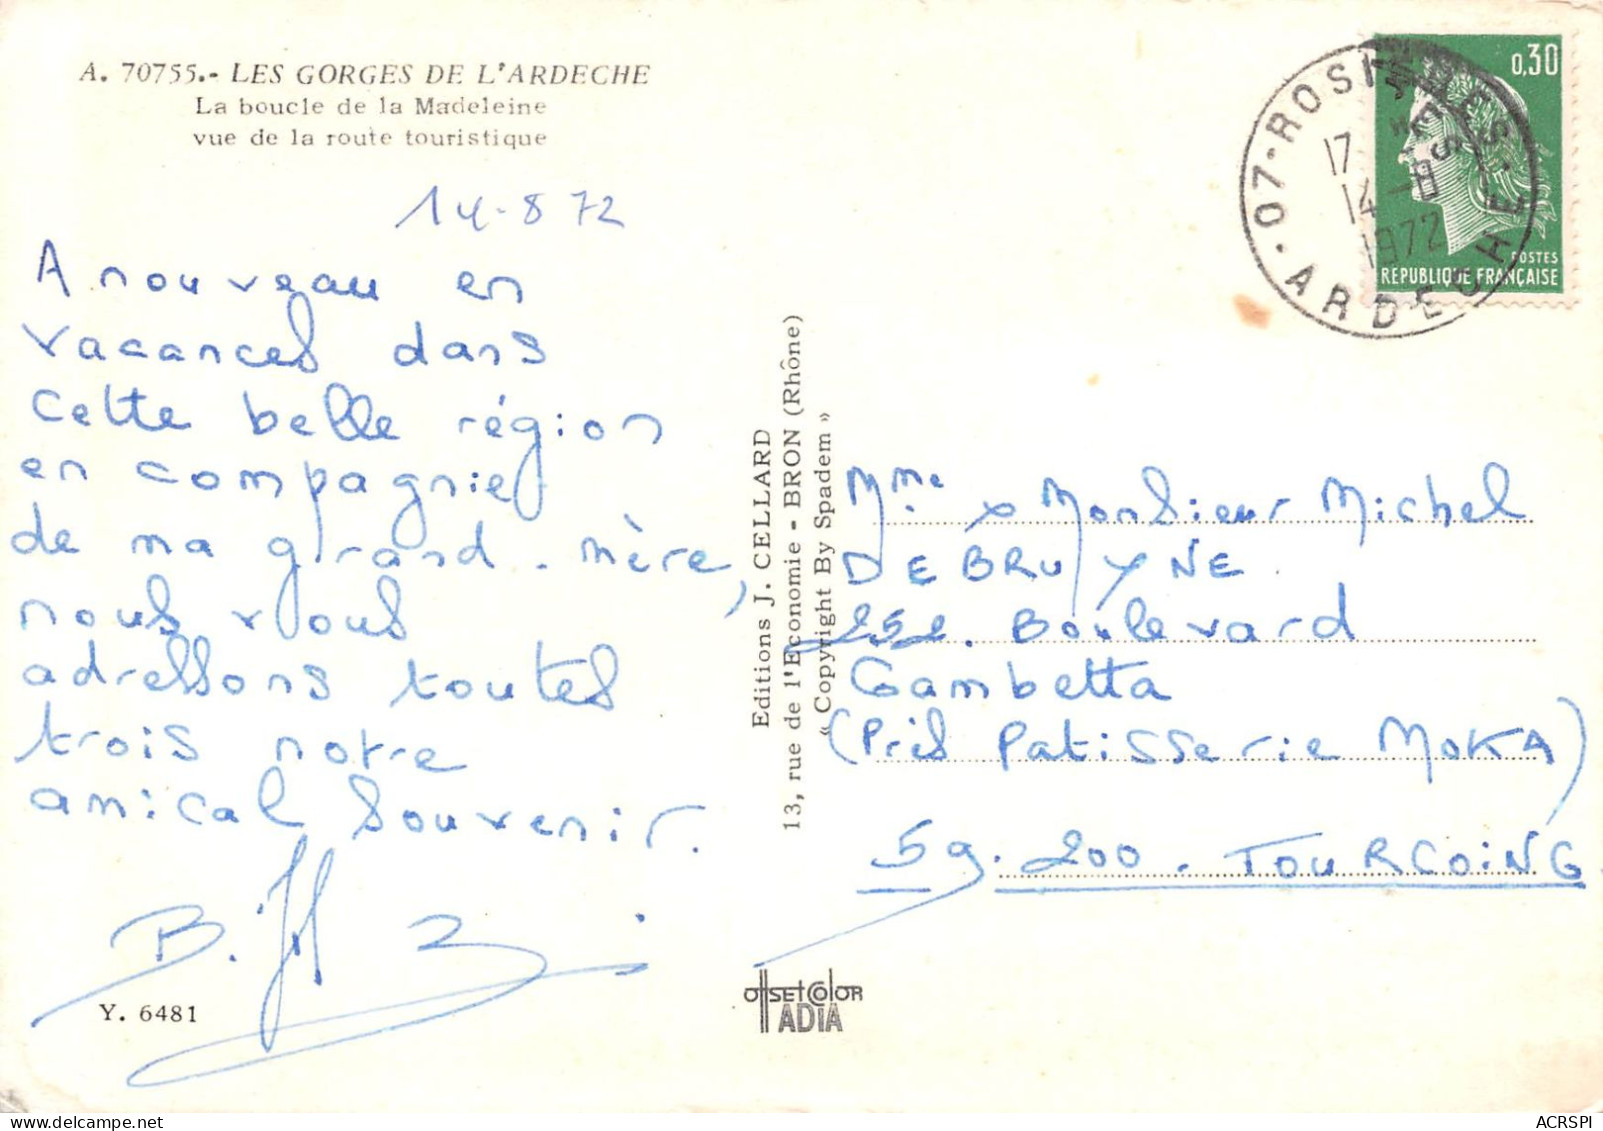 A. 70755.- LES GORGES DE L'ARDECHE
La boucle de la Madeleine
vue de la route touristique
14-8 72
A nouveau en
vacances dans
cette belle région
en compagnie
de ma grand-mère,
nous vous
adressons toutes
trois notre
amical souvenir.
B.
Y. 6481
Editions J. CELLARD
13, rue de l'Economie - BRON (Rhône)
« Copyright By Spadem »
offset color
IADIA
0,30
POSTES
REPUBLIQUE FRANÇAISE
07-ROSIERES
17
14-8
1972
ARDECHE
Mme & Monsieur Michel
DEBRUYNE
252. Boulevard
Gambetta
(Près Patisserie MOKA)
59.200. TOURCOING
ACRSPI